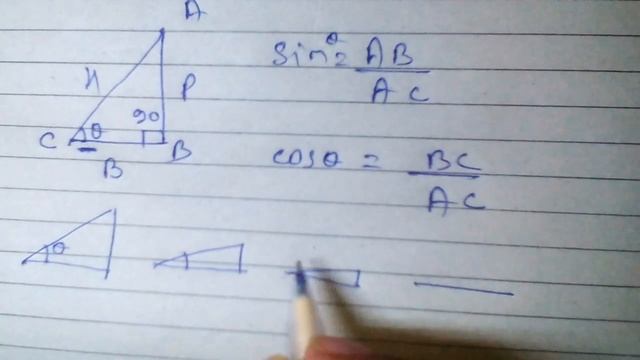 A
H
P
90
C θ B
B
sinθ = AB
AC
cosθ = BC
AC
θ